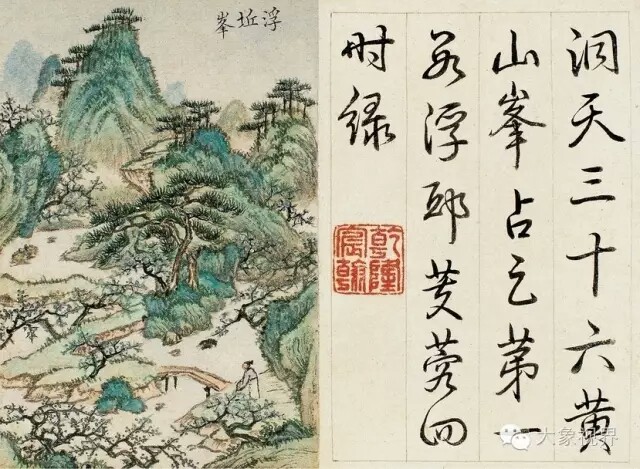 浮坵峯
洞天三十六黄
山峯占之苐一
若浮邱芙蓉四
时绿
乾隆
宸翰
大象视界